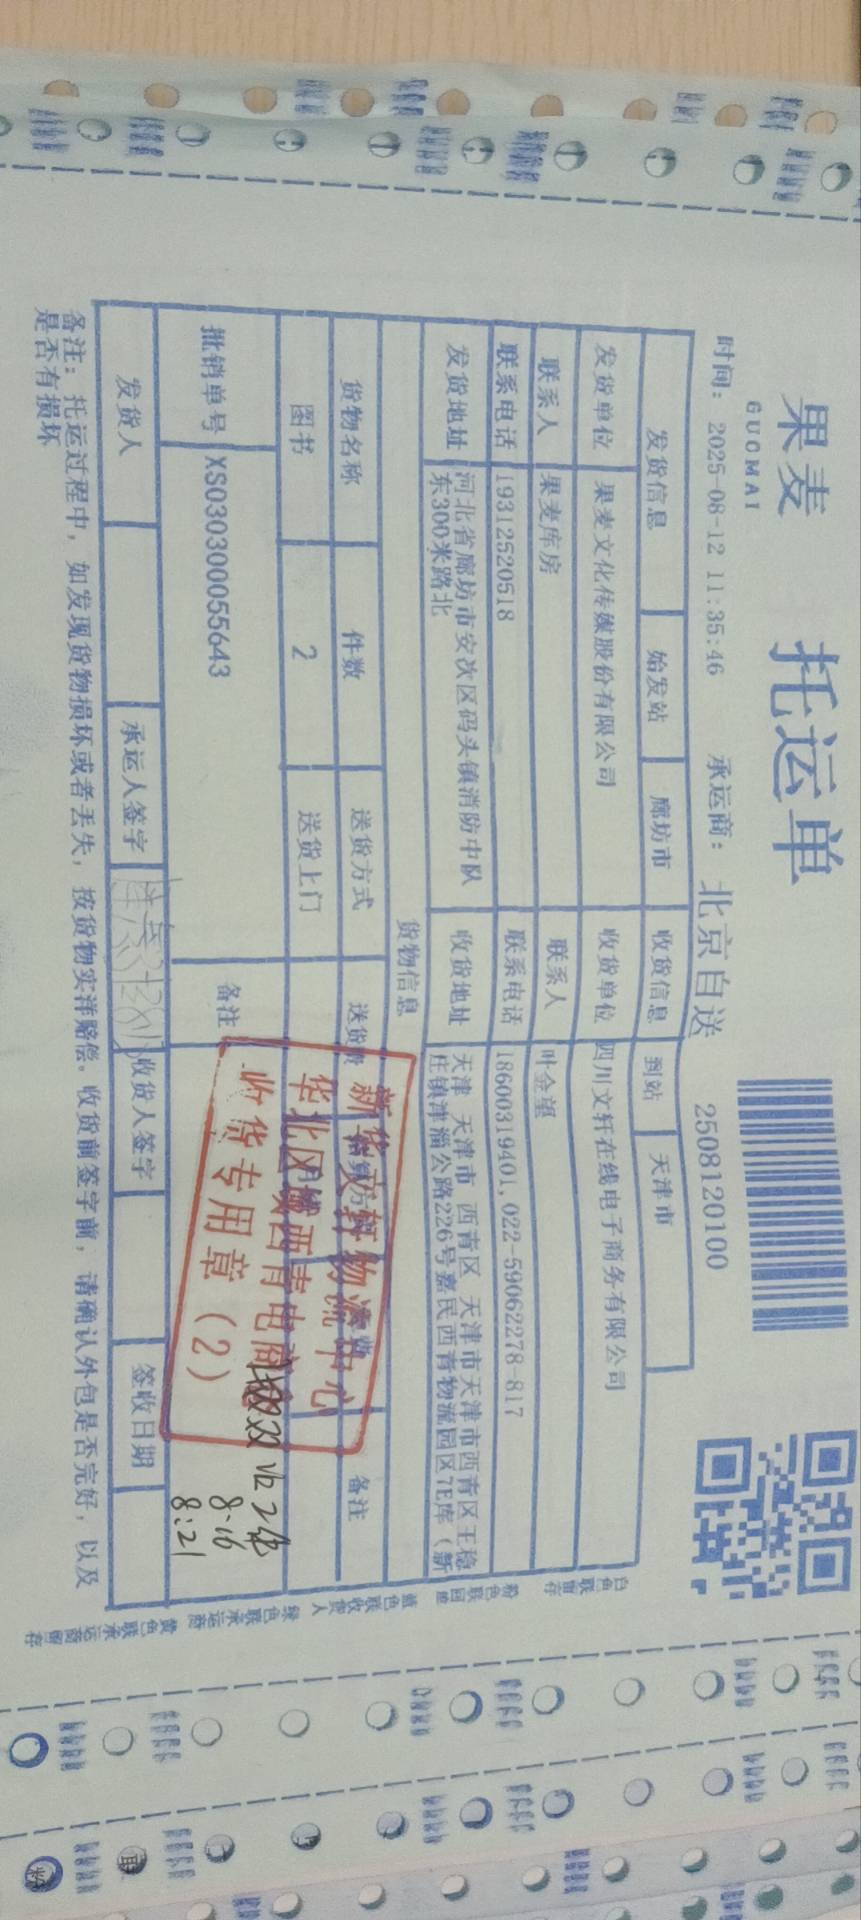 果麦
GUOMAI
托运单
时间: 2025-08-12 11:35:46 承运商: 北京自送 2508120100
发货信息 始发站 廊坊市 收货信息 到站 天津市
发货单位 果麦文化传媒股份有限公司 收货单位 四川文轩在线电子商务有限公司
联系人 果麦库房 联系人 叶金望
联系电话 19312520518 联系电话 18600319401,022-59062278-817
发货地址 河北省廊坊市安次区码头镇消防中队东300米路北 收货地址 天津 天津市 西青区 天津市天津市西青区王稳庄镇津淄公路226号嘉民西青物流园区7E库(新
货物信息
货物名称 件数 送货方式 送货费 备注
图书 2 送货上门
批销单号 XS030300055643 备注
新华文轩物流中心
华北区域西青电商
收货专用章(2)
8.16
8:21
发货人 承运人签字 收货人签字 签收日期
备注: 托运过程中,如发现货物损坏或者丢失,按货物实洋赔偿。收货前签字前,请确认外包是否完好,以及
是否有损坏
白色联留存 粉色联回库 蓝色联收货人 绿色联承运商 黄色联承运商留存